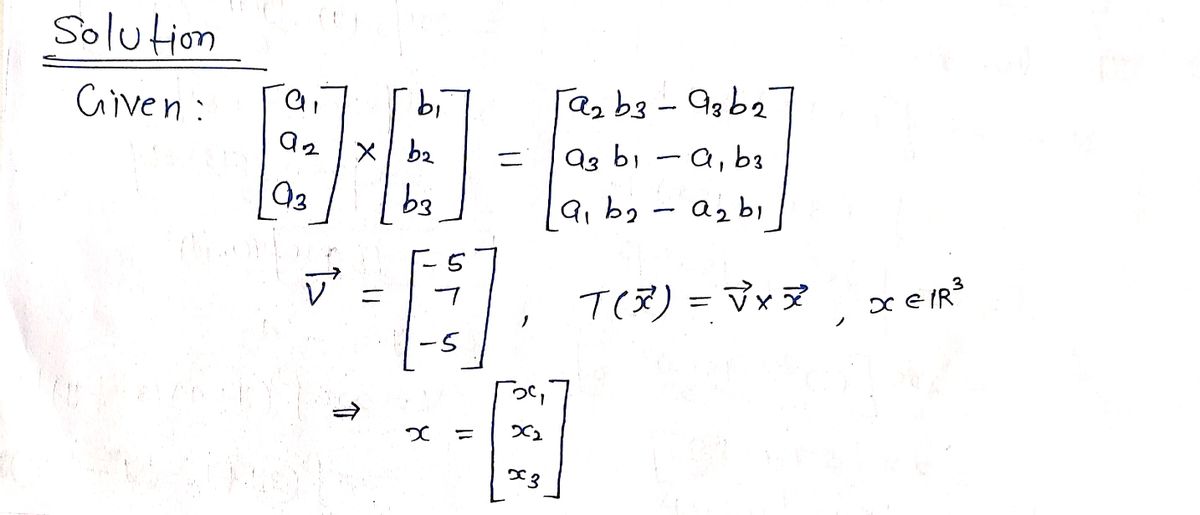 Solution
Given: [a1 a2 a3] × [b1 b2 b3] = [a2 b3 - a3 b2 a3 b1 - a1 b3 a1 b2 - a2 b1]
v⃗ = [-5 7 -5], T(x⃗) = v⃗ × x⃗, x ∈ ℝ³
⇒ x = [x1 x2 x3]